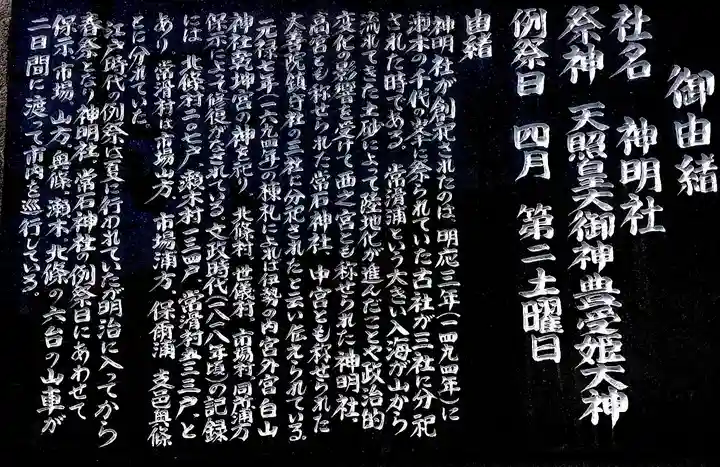 御由緒
社名 神明社
祭神 天照皇大御神豊受姫大神
例祭日 四月 第二土曜日
由緒
神明社が創祀されたのは、明応三年(一四九四年)に
瀬木の千代の峯に祭られていた古社が三社に分祀
された時である。常滑浦という大きい入海が山から
流れてきた土砂によって陸地化が進んだことや政治的
変化の影響を受けて西之宮とも称せられた神明社、
高宮とも称せられた常石神社、中宮とも称せられた
大善院鎮守社の三社に分祀されたと云い伝えられている。
元禄七年(一六九四年)の棟札によれば伊勢の内宮外宮白山
神社乾坤宮の神を祀り、北條村、世儀村、市場村、同所浦方
保示によって修復がなされている。文政時代(一八一八年頃)の記録
には、北條村二〇七戸、瀬木村一三四戸、常滑村五三三戸、と
あり、常滑村は市場山方、市場浦方、保示浦、支邑奥條
とに分れていた。
江戸時代、例祭は夏に行われていたが明治に入ってから
春祭となり神明社、常石神社の例祭日にあわせて
保示、市場、山方、奥條、瀬木、北條の六台の山車が
二日間に渡って市内を巡行している。